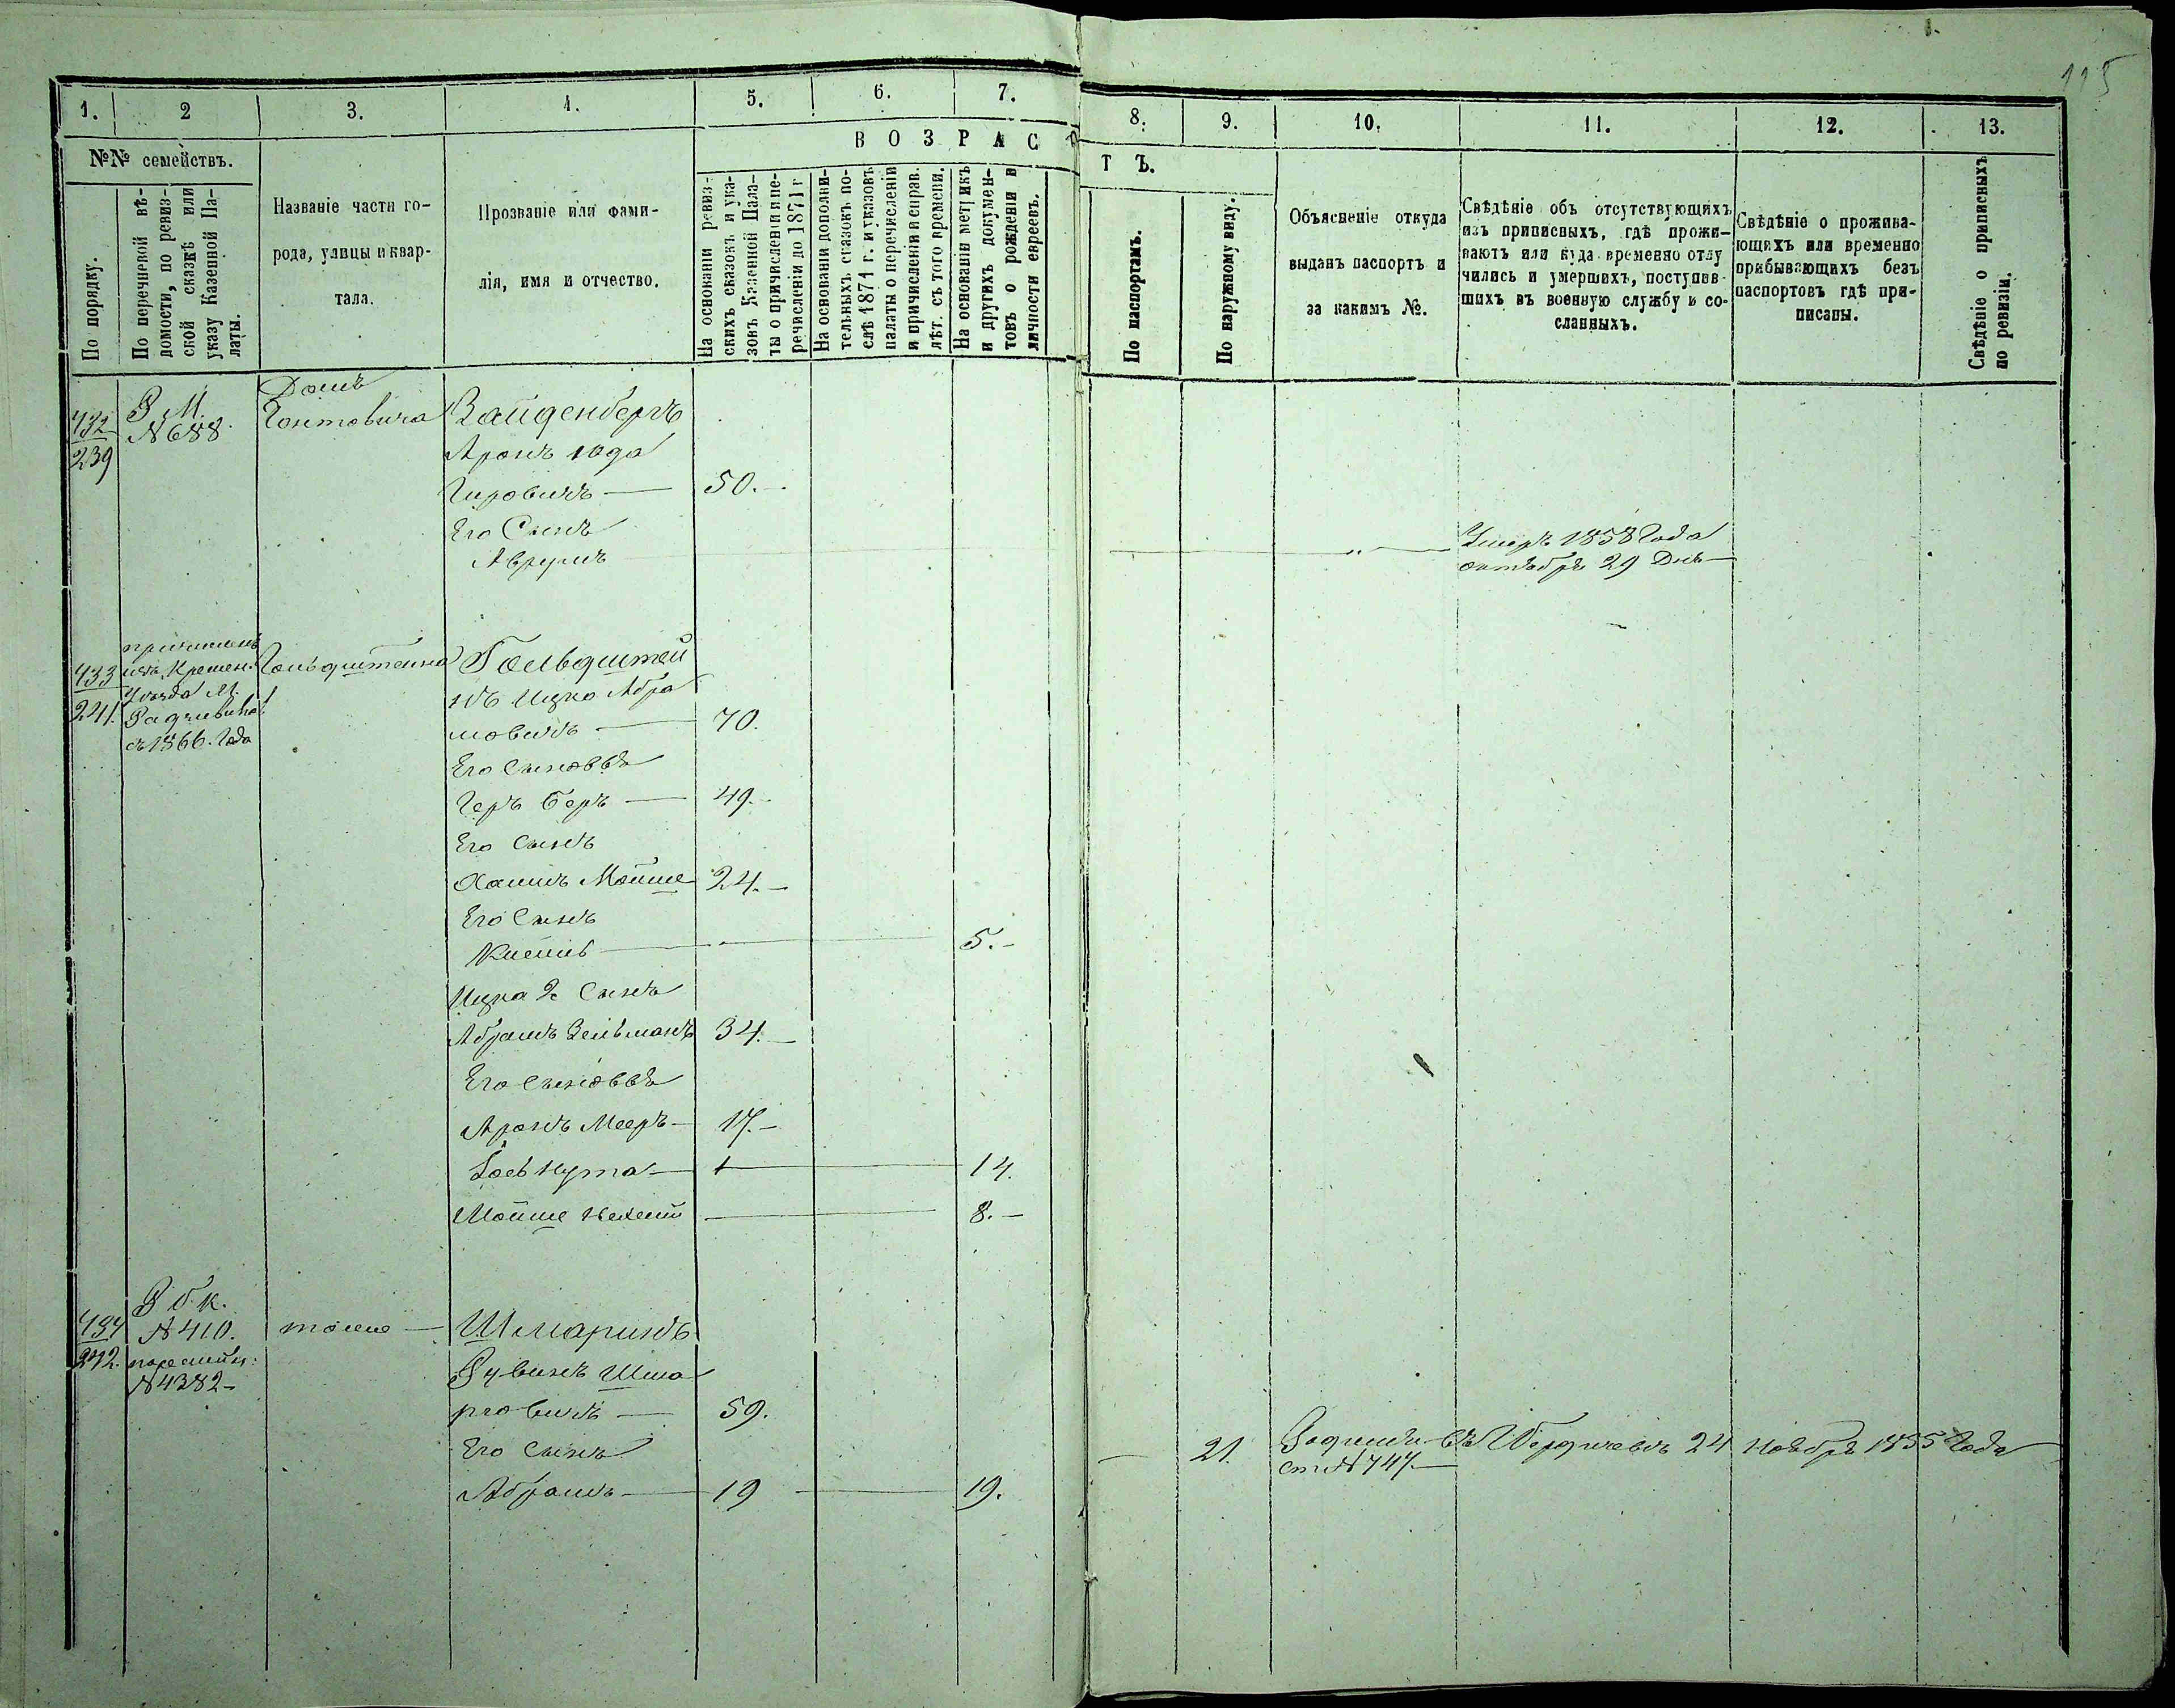 115
1. 2 3. 4. 5. 6. 7. 8. 9. 10. 11. 12. 13.
№№ семействъ.
По порядку.
По перечневой вѣ-
домости, по ревиз-
ской сказкѣ или
указу Казенной Па-
латы.
Названіе части го-
рода, улицы и квар-
тала.
Прозваніе или фами-
лія, имя и отчество.
ВОЗРАСТЪ.
На основаніи ревиз-
скихъ сказокъ и ука-
зовъ Казенной Пала-
ты о причисленіи и пе-
речисленіи до 1871 г
На основаніи дополни-
тельныхъ сказокъ по-
слѣ 1871 г. и указовъ
палаты о перечисленіи
и причисленіи и справ.
лѣт. съ того времени.
На основаніи метрикъ
и другихъ докумен-
товъ о рожденіи и
личности евреевъ.
По паспортамъ.
По наружному виду.
Объясненіе откуда
выданъ паспортъ и
за какимъ №.
Свѣдѣніе объ отсутствующихъ
изъ приписныхъ, гдѣ прожи-
ваютъ или куда временно отлу
чились и умершихъ, поступив-
шихъ въ военную службу и со-
сланныхъ.
Свѣдѣніе о прожива-
ющихъ или временно
прибывающихъ безъ
паспортовъ гдѣ при-
писаны.
Свѣдѣніе о приписныхъ
по ревизіи.
432
239
Р М.
№ 688.
Домъ
Гонтовича
Вайденбергъ
Аронъ Юда
Гировичъ — 50.-
Его Сынъ
Аврумъ — Умеръ 1858 Года
октября 29 Дня
433
241.
причисленъ
изъ Кремен.
Уѣзда М.
Радзивилова
съ 1866. Года
Гольдштейна
Гольдштей
нъ Ицко Абра
мовичъ — 70.
Его Сыновья
Герь Беръ — 49.-
Его Сынъ
Хаимъ Мойше 24.-
Его Сынъ
— 5.-
Ицка 2й Сынъ
Абрамъ Зельманъ 34.-
Его Сыновья
Аронъ Мееръ — 17.-
Іось Нута — 14.
Мойше — 8.-
434
242.
Р б. к.
№ 410.
№ 4382-
тоже —
Шмаринъ
Рувинъ Шма
ровичъ — 59.
Его Сынъ
Абрамъ — 19 — 19. — 21.
Родился въ г. Бердичевѣ 24 Ноября 1855 Года
ст. № 747.